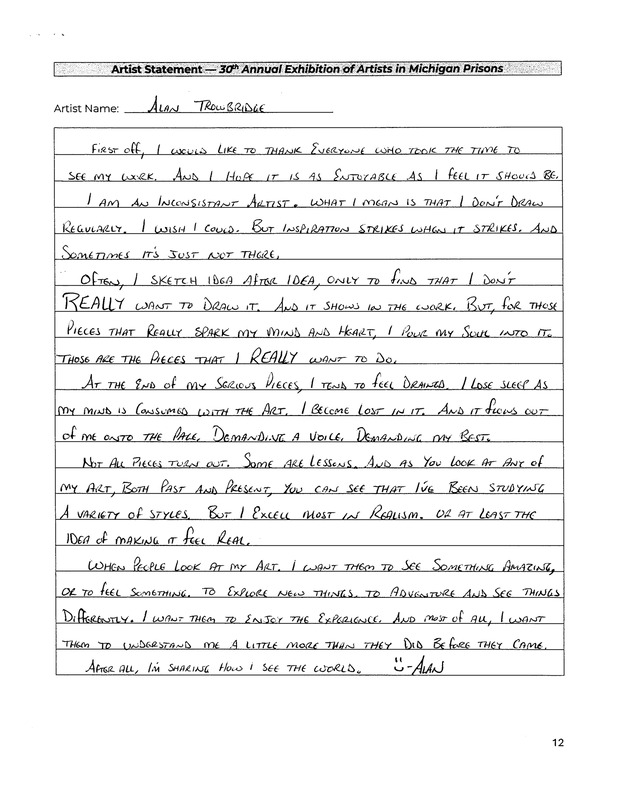 Artist Statement — 30th Annual Exhibition of Artists in Michigan Prisons
Artist Name: ALAN TROWBRIDGE
FIRST OFF, I WOULD LIKE TO THANK EVERYONE WHO TOOK THE TIME TO
SEE MY WORK. AND I HOPE IT IS AS ENJOYABLE AS I FEEL IT SHOULD BE.
I AM AN INCONSISTANT ARTIST. WHAT I MEAN IS THAT I DON'T DRAW
REGULARLY. I WISH I COULD. BUT INSPIRATION STRIKES WHEN IT STRIKES. AND
SOMETIMES IT'S JUST NOT THERE.
OFTEN, I SKETCH IDEA AFTER IDEA, ONLY TO FIND THAT I DON'T
REALLY WANT TO DRAW IT. AND IT SHOWS IN THE WORK. BUT, FOR THOSE
PIECES THAT REALLY SPARK MY MIND AND HEART, I POUR MY SOUL INTO IT.
THOSE ARE THE PIECES THAT I REALLY WANT TO DO.
AT THE END OF MY SERIOUS PIECES, I TEND TO FEEL DRAINED. I LOSE SLEEP AS
MY MIND IS CONSUMED WITH THE ART. I BECOME LOST IN IT. AND IT FLOWS OUT
OF ME ONTO THE PAGE. DEMANDING A VOICE. DEMANDING MY BEST.
NOT ALL PIECES TURN OUT. SOME ARE LESSONS. AND AS YOU LOOK AT ANY OF
MY ART, BOTH PAST AND PRESENT, YOU CAN SEE THAT I'VE BEEN STUDYING
A VARIETY OF STYLES. BUT I EXCELL MOST IN REALISM. OR AT LEAST THE
IDEA OF MAKING IT FEEL REAL.
WHEN PEOPLE LOOK AT MY ART. I WANT THEM TO SEE SOMETHING AMAZING,
OR TO FEEL SOMETHING. TO EXPLORE NEW THINGS. TO ADVENTURE AND SEE THINGS
DIFFERENTLY. I WANT THEM TO ENJOY THE EXPERIENCE. AND MOST OF ALL, I WANT
THEM TO UNDERSTAND ME A LITTLE MORE THAN THEY DID BEFORE THEY CAME.
AFTER ALL, I'M SHARING HOW I SEE THE WORLD. -ALAN
12